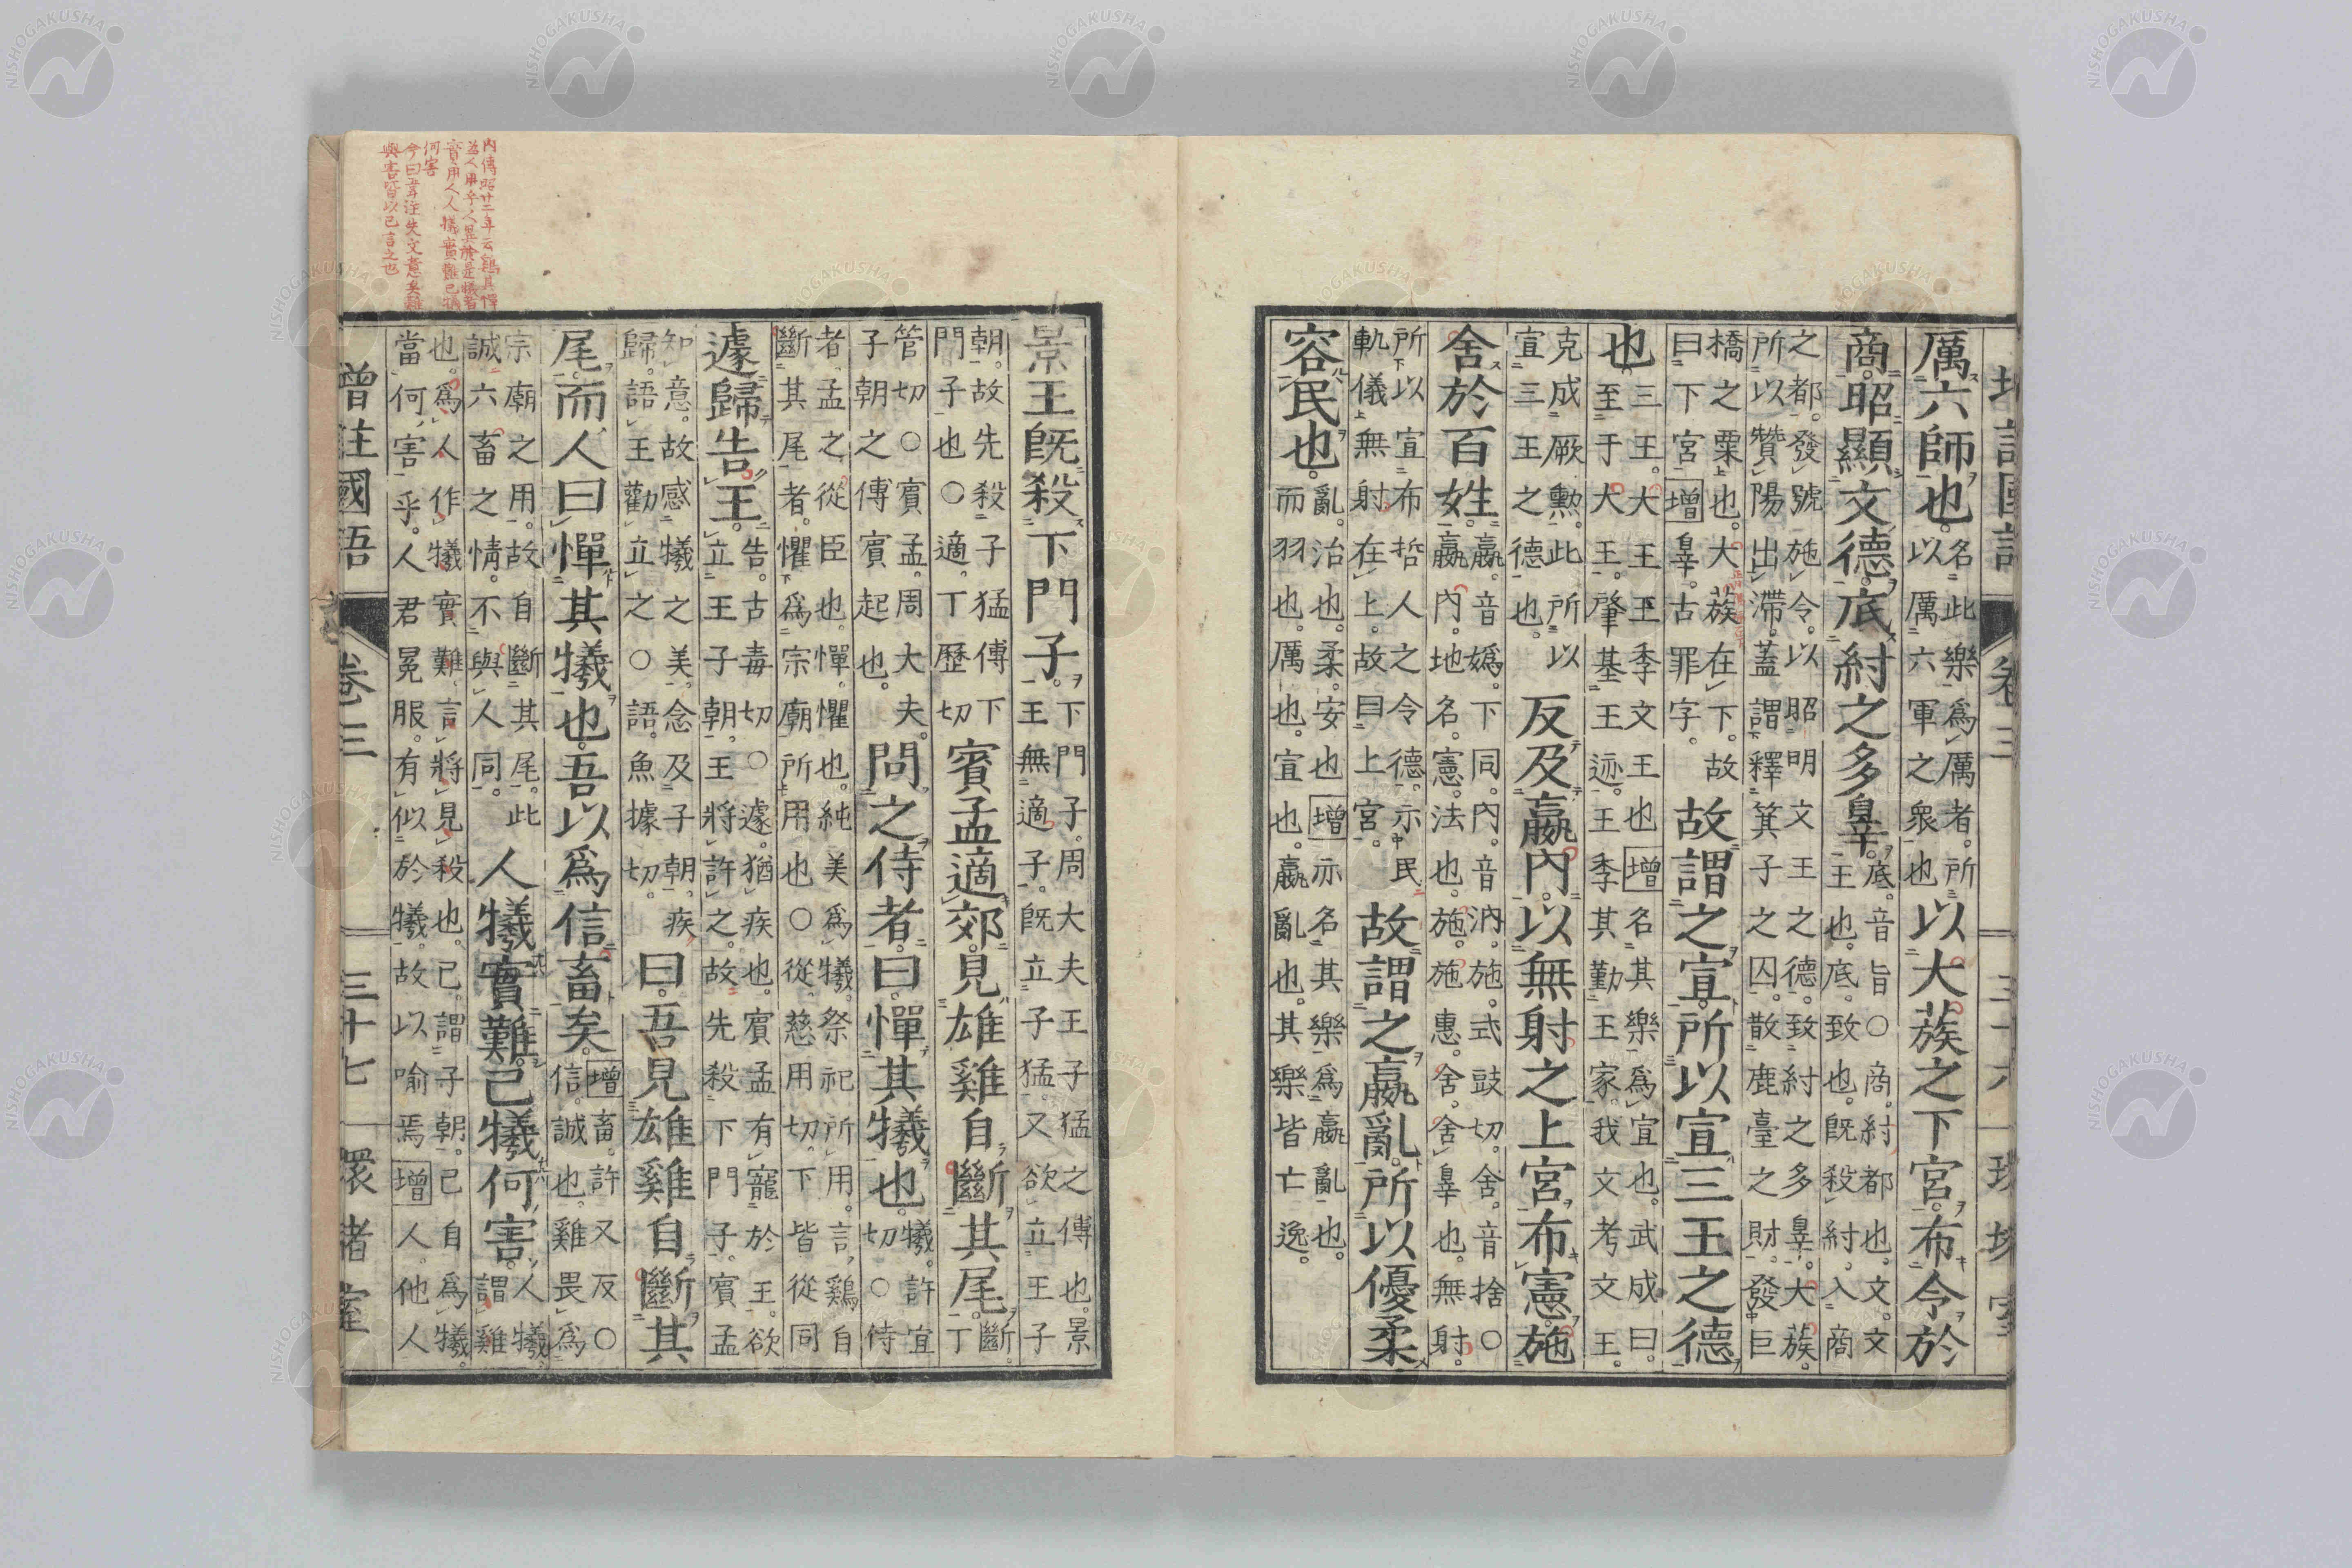 增註國語 卷三 三十六 環堵室
厲六師也。名此樂爲厲者。所
以厲六軍之衆也 以大蔟之下宮。布令於
商。昭顯文德。底紂之多辠。底。音旨○商。紂都也。文。文
王也。底。致也。既殺紂。入商
之都。發號施令。以昭明文王之德。致紂之多辠。大蔟。
所以贊陽出滯。蓋謂釋箕子之囚。散鹿臺之財。發巨
橋之粟也。大蔟在下。故
曰下宮增辠。古罪字。 故謂之宣。所以宣三王之德
也。三王。大王王季文王也增名其樂爲宣也。武成曰。
至于大王。肇基王迹。王季其勤王家。我文考文王。
克成厥勲。此所以
宣三王之德也。 反及嬴內。以無射之上宮。布憲施
舍於百姓。嬴。音嬀。下同。內。音汭。施。式豉切。舍。音捨○
嬴內。地名。憲。法也。施。施惠。舍。舍辠也。無射。
所以宣布哲人之令德。示民
軌儀無射在上。故曰上宮。 故謂之嬴亂。所以優柔
容民也。亂。治也。柔。安也增亦名其樂爲嬴亂也。
而羽也。厲也。宣也。嬴亂也。其樂皆亡逸。
景王既殺下門子。下門子。周大夫王子猛之傅也。景
王無適子。既立子猛。又欲立王子
朝。故先殺子猛傅下
門子也○適。丁歷切 賓孟適郊。見雄雞自斷其尾。斷。
丁
管切○賓孟。周大夫。
子朝之傅賓起也。 問之侍者。曰。憚其犧也。犧。許宜
切○侍
者孟之從臣也。憚。懼也。純美爲犧。祭祀所用。言鷄自
斷其尾者。懼爲宗廟所用也○從。慈用切。下皆從同
遽歸告王。告。古毒切○遽。猶疾也。賓孟有寵於王。欲
立王子朝。王將許之。故先殺下門子。賓孟
知意。故感犧之美。念及子朝。疾
歸。語王勸立之○語。魚據切。 曰。吾見雄雞自斷其
尾。而人曰憚其犧也。吾以爲信畜矣。增畜。許又反○
信。誠也。雞畏爲
宗廟之用。故自斷其尾。此
誠六畜之情。不與人同。 人犧實難。己犧何害。人犧。
謂雞
也。爲人作犧實難。言將見殺也。己。謂子朝。己自爲犧。
當何害乎。人君冕服。有似於犧。故以喻焉增人。他人
增註國語 卷三 三十七 環堵室
內傳昭廿二年云雞其憚
爲人用乎人異於是犧者
實用人人犧實難己犧
何害
今曰韋注失文意矣難
與害皆以己言之也
NISHOGAKUSHA